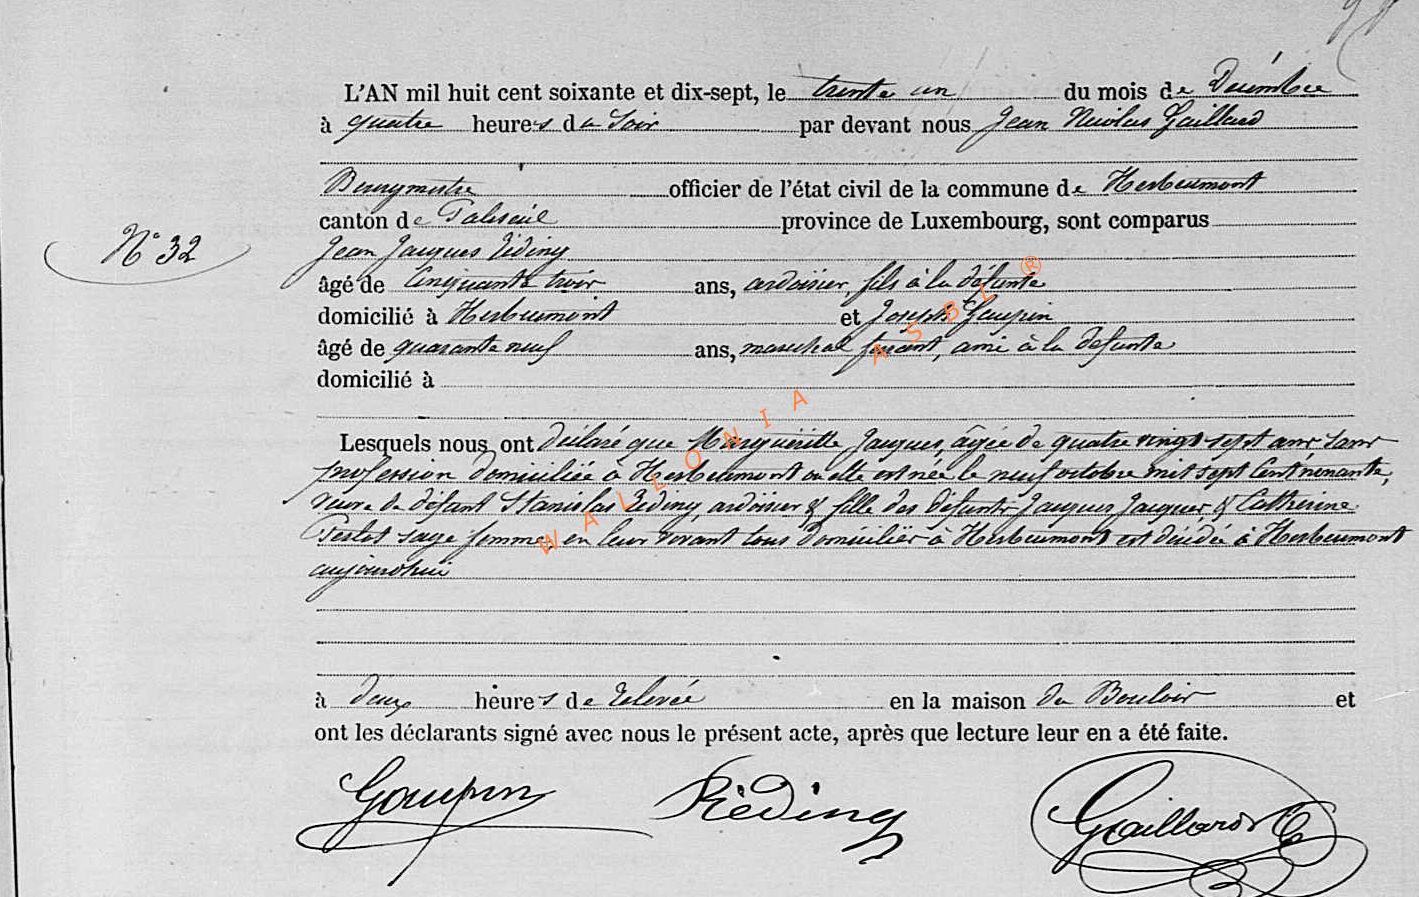 L'AN mil huit cent soixante et dix-sept, le trente un du mois de Décembre
à quatre heures du Soir par devant nous Jean Nicolas Gaillard
Bourgmestre officier de l'état civil de la commune de Herbeumont
canton de Paliseul province de Luxembourg, sont comparus
N° 32
Jean Jacques Rèding
âgé de Cinquante trois ans, ardoisier, fils à la défunte
domicilié à Herbeumont et Joseph Goupin
âgé de quarante neuf ans, marechal ferrant, ami à la défunte
domicilié à
Lesquels nous ont déclaré que Marguerite Jacques, âgée de quatre vingt sept ans, sans
profession domiciliée à Herbeumont où elle est née le neuf octobre mil sept Cent nonante,
veuve de défunt Stanislas Rèding, ardoisier & fille des défunts Jacques Jacques & Catherine
sage femme, en leur vivant tous domiciliés à Herbeumont est décédée à Herbeumont
aujourdhui
à deux heures de relevée en la maison du Bouloir et
ont les déclarants signé avec nous le présent acte, après que lecture leur en a été faite.
Goupin Rièding Gaillard
WALLONIA ASBL ®